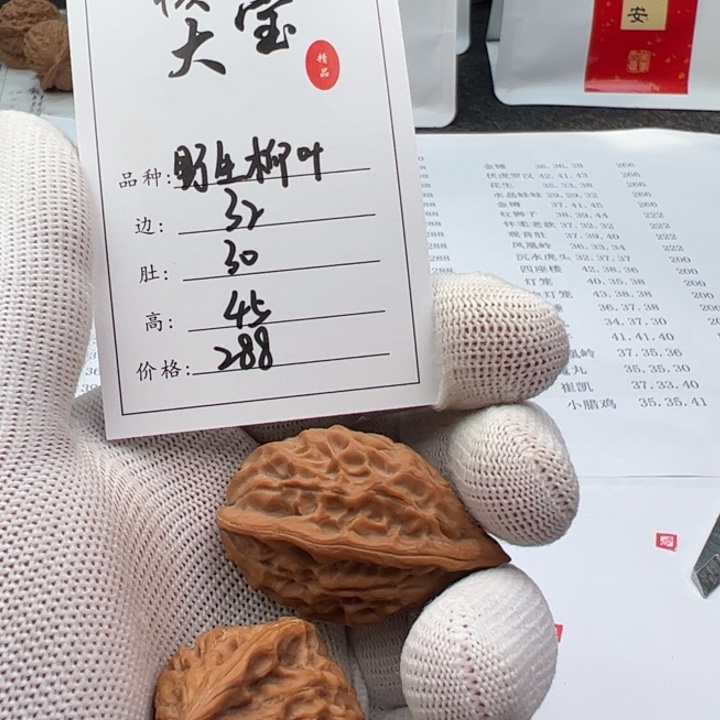 大宝
精品
品种:野生柳叶
边:32
肚:30
高:45
价格:288
安
36.36.38 266
伏虎罗汉 42.41.43 266
花生 35.33.38 266
水晶娃娃 29.29.32 266
37.41.45 266
红狮子 38.39.44 222
怀柔老款 37.32.32 222
观音肚 37.39.40 222
凤凰岭 36.33.34 222
沉水虎头 32.37.37 200
四座楼 42.38.36 200
灯笼 40.35.38 200
灯笼 43.38.38 200
36.37.38 200
34.37.30 200
41.41.40
凰岭 37.35.36
丸 35.35.30
崔凯 37.33.40
小腊鸡 35.35.41
288
288